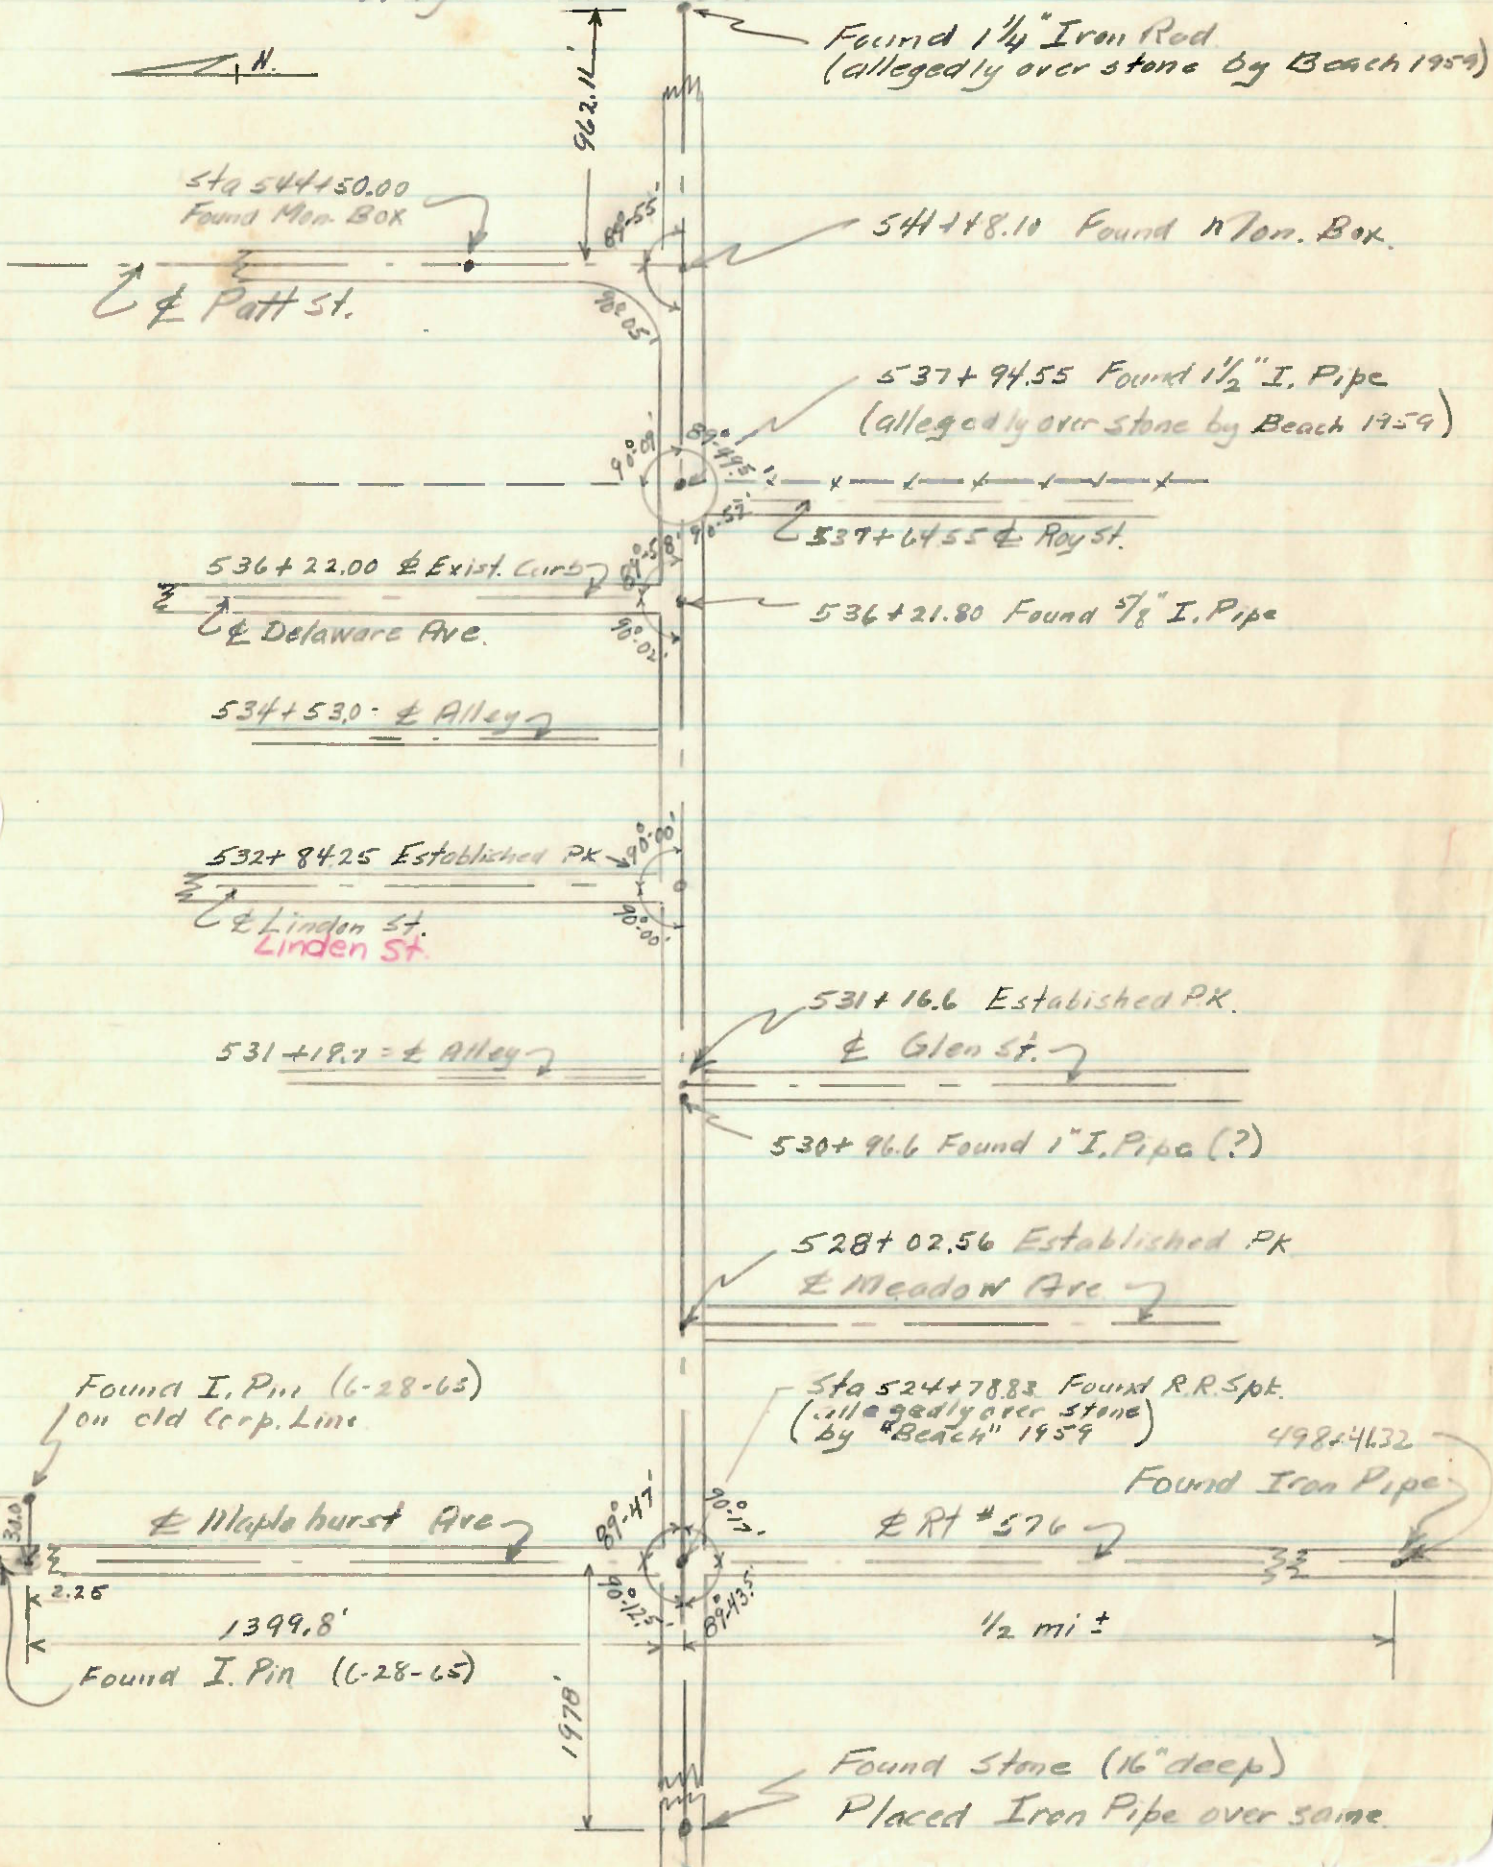 Found 1 1/4" Iron Rod
(allegedly over stone by Beach 1959)
N.
962.11'
Sta 544+50.00
Found Mon. Box
89°-55'
541+48.10 Found Mon. Box.
℄ Patt St.
90°-05'
537+94.55 Found 1 1/2" I. Pipe
(allegedly over stone by Beach 1959)
90°-01'
89°-49.5'
90°-57'
537+64.55 ℄ Roy St.
536+22.00 ℄ Exist. Curb
89°-58'
536+21.80 Found 5/8" I. Pipe
℄ Delaware Ave.
90°-02'
534+53.0 = ℄ Alley
90°-00'
532+84.25 Established PK
℄ Lindon St.
Linden St.
90°-00'
531+16.6 Estabished P.K.
531+18.7 = ℄ Alley
℄ Glen St.
530+96.6 Found 1" I. Pipe (?)
528+02.56 Established PK
℄ Meadow Ave
Found I. Pin (6-28-65)
on old Corp. Line
Sta 524+78.83 Found R.R. Spk.
(allegedly over stone
by "Beach" 1959)
498+41.32
Found Iron Pipe
30.0
℄ Maplehurst Ave
89°-47'
90°-17'
℄ Rt #576
2.25
90°-12.5'
89°-43.5'
1399.8'
1/2 mi ±
Found I. Pin (6-28-65)
1978'
Found Stone (16" deep)
Placed Iron Pipe over same.